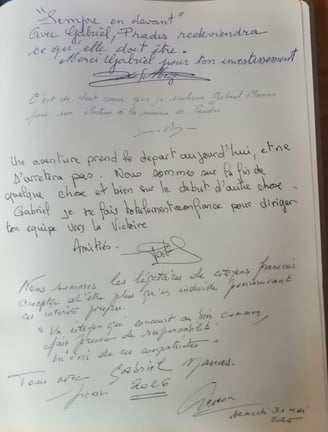 "Sempre en davant"
Avec Gabriel, Prades redeviendra
ce qu'elle doit être.
Merci Gabriel pour ton investissement
C'est de tout coeur que je soutiens Gabriel
pour son élection à la mairie de Prades
Une aventure prend le départ aujourd'hui, et ne
s'arretera pas. Nous sommes sur la fin de
quelque chose et bien sur le début d'autre chose.
Gabriel je te fais totalement confiance pour diriger
ton équipe vers la Victoire
Amitiés.
Nous sommes les de citoyens français
accepter d'être plus qu'un individu poursuivant
ces interets propres.
"Un citoyen qui concourt au bien commun
fait preuve de responsabilité
de ces compatriotes"
Tous avec Gabriel
pour 2026
Samedi 31 Mai
2025